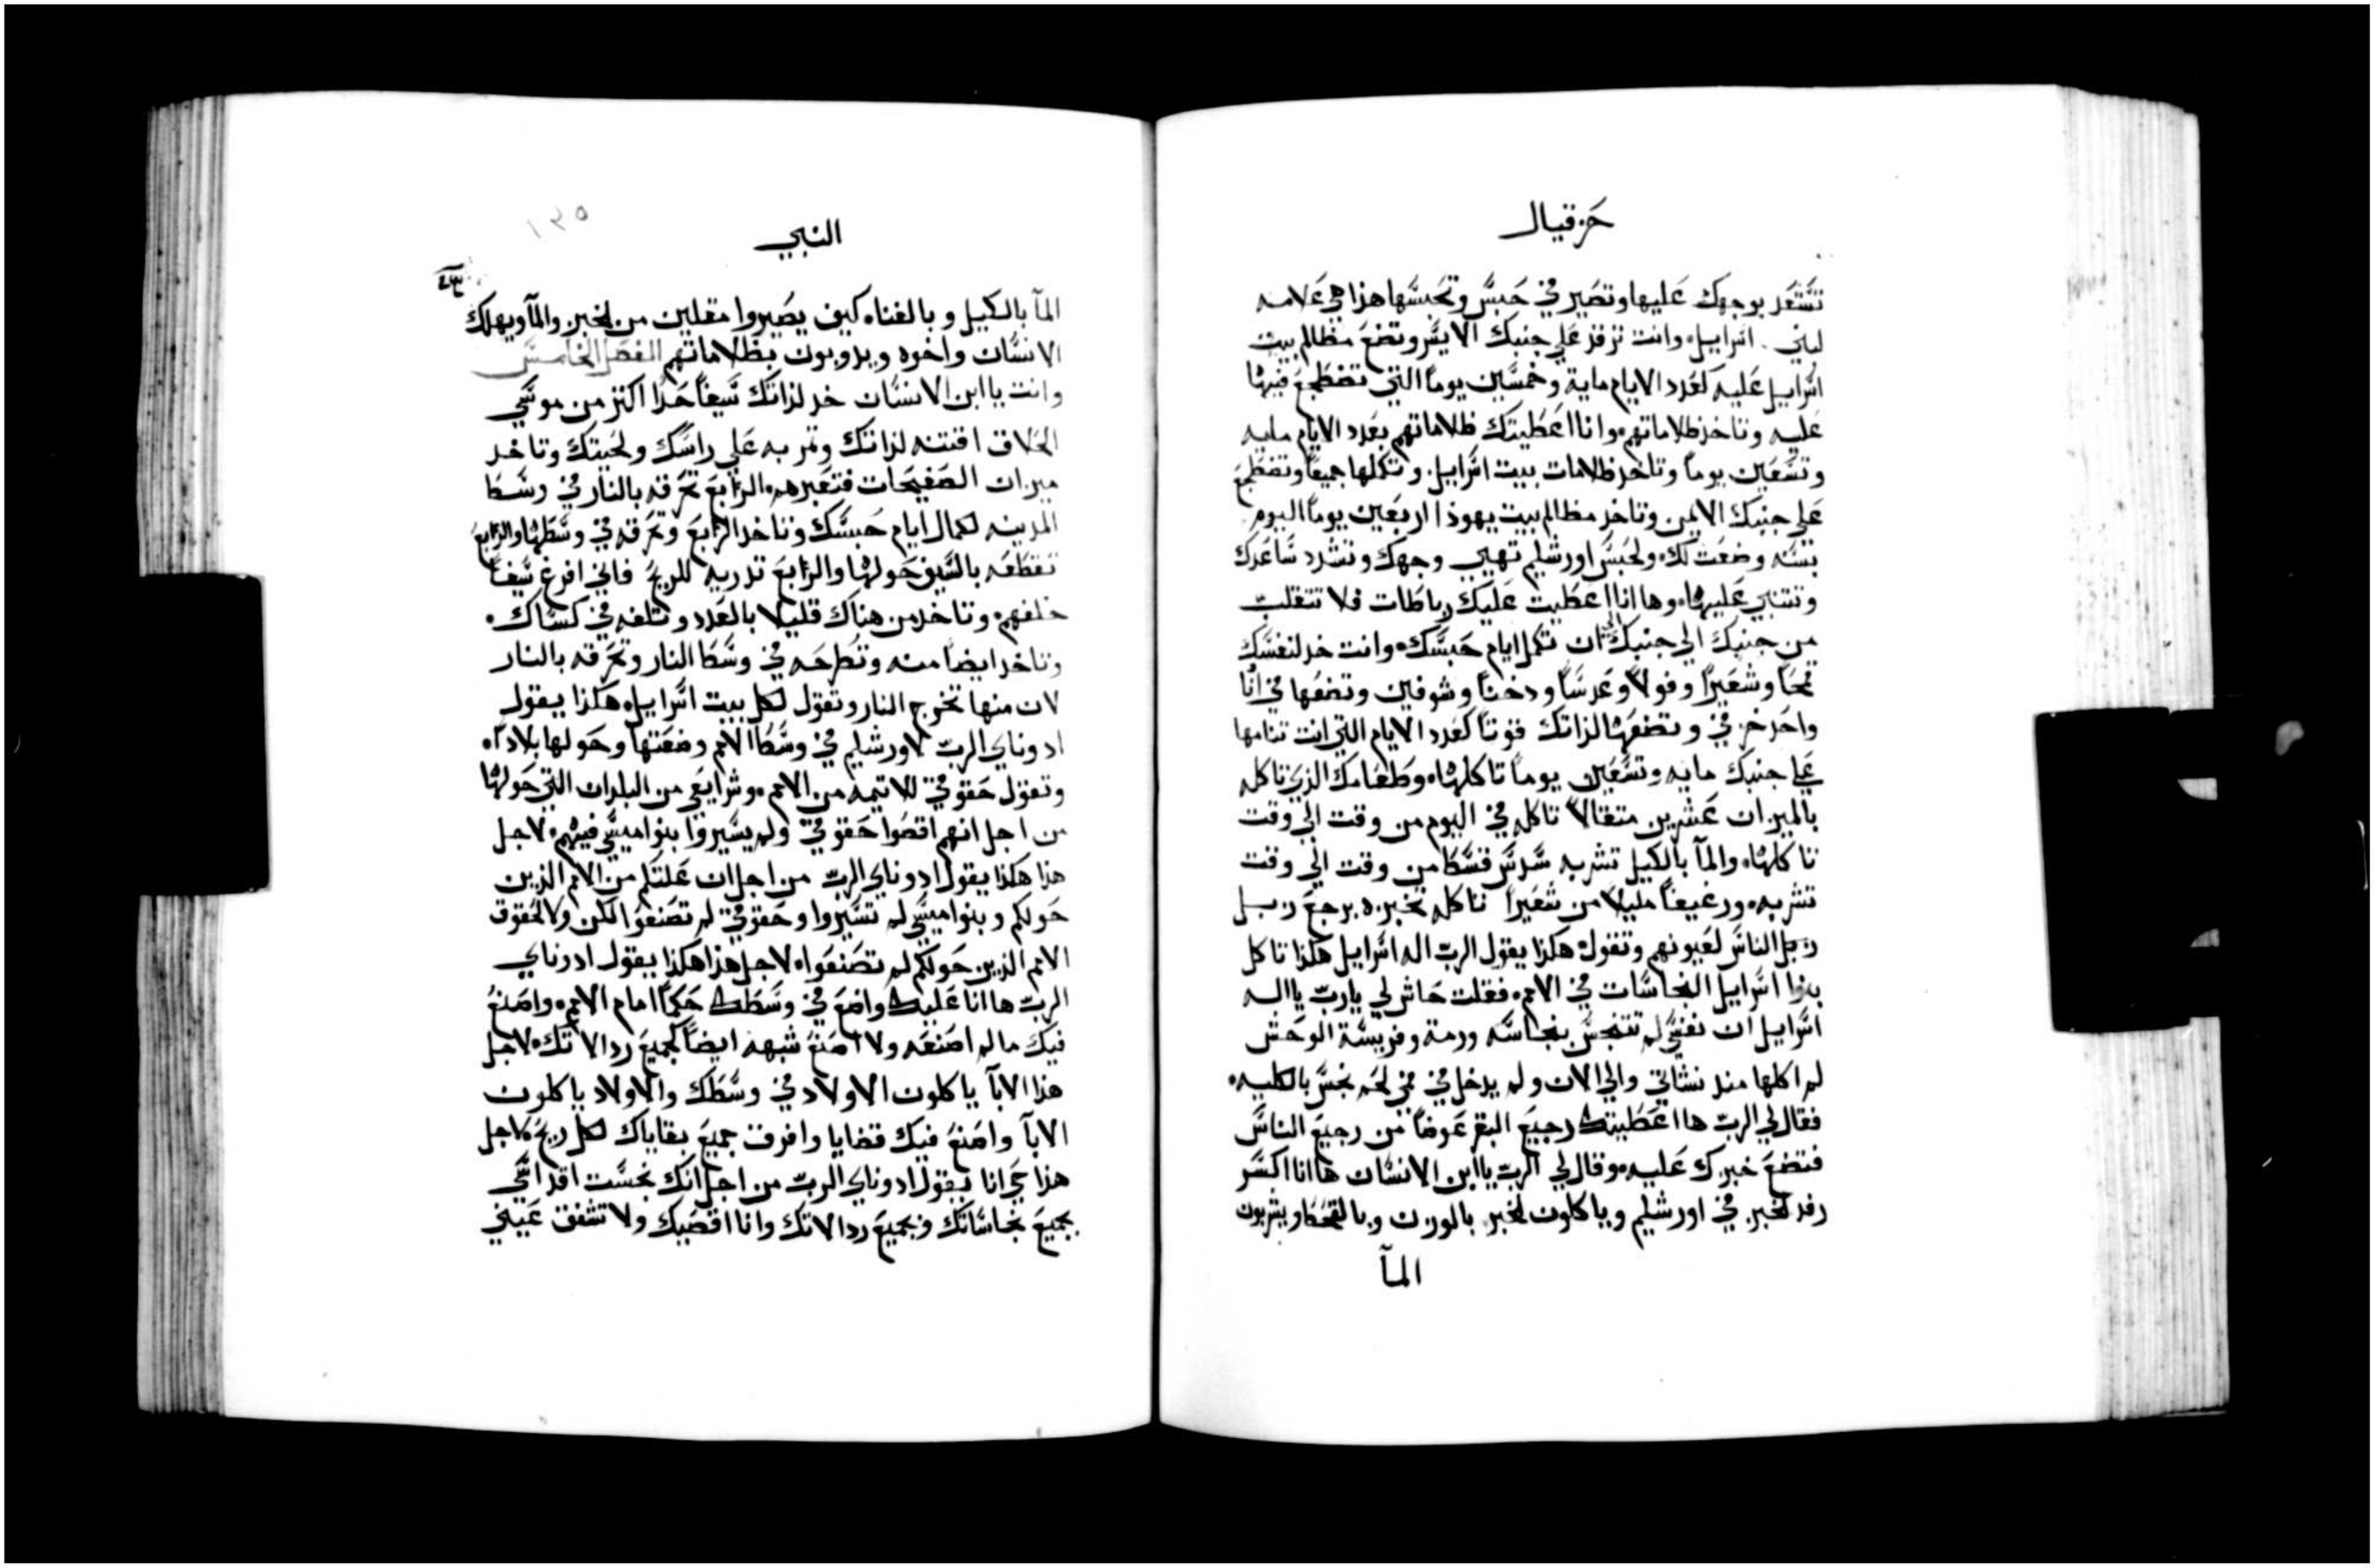 حزقيال
تستعد بوجهك عليها وتصير في حبس وتحبسها هذا هي علامه
لبني اسراييل وانت ترقد علي جنبك الايسر وتضع مظالم بيت
اسراييل عليه كعدد الايام ماية وخمسين يوماً التي تضطجع فيها
عليه وتاخد ظلاماتهم وانا اعطيتك ظلاماتهم بعدد الايام مايه
وتسعين يوماً وتاخد ظلامات بيت اسراييل وتكملها جميعاً وتضطجع
علي جنبك الايمن وتاخد مظالم بيت يهودا اربعين يوماً اليوم
بسنه وضعت لك ولحبس اورشليم تهيي وجهك وتشدد ساعدك
وتتنبي عليها وها انا اعطيت عليك رباطات فلا تتقلب
من جنبك الي جنبك الي ان تكمل ايام حبسك وانت خد لنفسك
قمحاً وشعيراً وفولاً وعدساً ودخناً وشوفين وتضعها في انا
واحد خزفي وتضعها لذاتك قوتاً كعدد الايام التي انت تنامها
علي جنبك مايه وتسعين يوماً تاكلها وطعامك الذي تاكله
بالميزان عشرين متقالاً تاكله في اليوم من وقت الي وقت
تاكلها والمآ بالكيل تشربه سدس قسط من وقت الي وقت
تشربه ورغيفاً مليلا من شعيراً تاكله تخبزه برجع زبل
زبل الناس لعيونهم وتقول هكذا يقول الرب اله اسراييل هكذا تاكل
بنوا اسراييل النجاسات في الامم فقلت حاش لي يارب يا اله
اسراييل ان نفسي لم تتنجس بنجاسه ورمة وفريسة الوحش
لم اكلها مند نشاتي والي الان ولم يدخل في فمي لحم نجس بالكليه
فقال لي الرب ها اعطيتك رجيع البقر عوضاً من رجيع الناس
فتضع خبزك عليه وقال لي الرب يا ابن الانسان ها انا اكسر
رفد الخبز في اورشليم وياكلون الخبز بالوزن وبالقحط ويشربون
المآ
النبي
١٣٥
المآ بالكيل وبالفناه كيف يصيروا مقلين من الخبز والمآ ويهلك
الانسان واخوه ويدوبون بظلاماتهم الفصل الخامس
وانت يا ابن الانسان خد لذاتك سيفاً حداً اكتر من موسي
الحلاق اقتنه لذاتك وتمر به علي راسك ولحيتك وتاخد
ميزان الصفيحات فتعبرهم الرابع تحرقه بالنار في وسط
المدينه لكمال ايام حبسك وتاخد الرابع وتحرقه في وسطها والرابع
تقطعه بالسيف حولها والرابع تدريه للريح فاني افرغ سيفاً
خلفهم وتاخد من هناك قليلا بالعدد وتلفه في كساك
وتاخد ايضاً منه وتطرحه في وسط النار وتحرقه بالنار
لان منها تخرج النار وتقول لكل بيت اسراييل هكذا يقول
ادوناي الرب لاورشليم في وسط الامم وضعتها وحولها بلاداً
وتقول حقوقي للاتيمه من الامم وشرايعي من البلدان التي حولها
من اجل انهم اقصوا حقوقي ولم يسيروا بنواميسي فيهم لاجل
هذا هكذا يقول ادوناي الرب من اجل ان علتكم من الامم الذين
حولكم وبنواميسي لم تسيروا وحقوقي لم تصنعوا لكن ولا كحقوق
الامم الذين حولكم لم تصنعوا لاجل هذا هكذا يقول ادوناي
الرب ها انا عليك واضع في وسطك حكماً امام الامم واصنع
فيك ما لم اصنعه ولا اصنع شبهه ايضاً لجميع ردالاتك لاجل
هذا الابآ ياكلون الاولاد في وسطك والاولاد ياكلون
الابآ واصنع فيك قضايا وافرق جميع بقاياك لكل ريح لاجل
هذا حي انا يقول ادوناي الرب من اجل انك نجست اقداسي
بجميع نجاساتك وبجميع ردالاتك وانا اقصيك ولا تشفق عيني